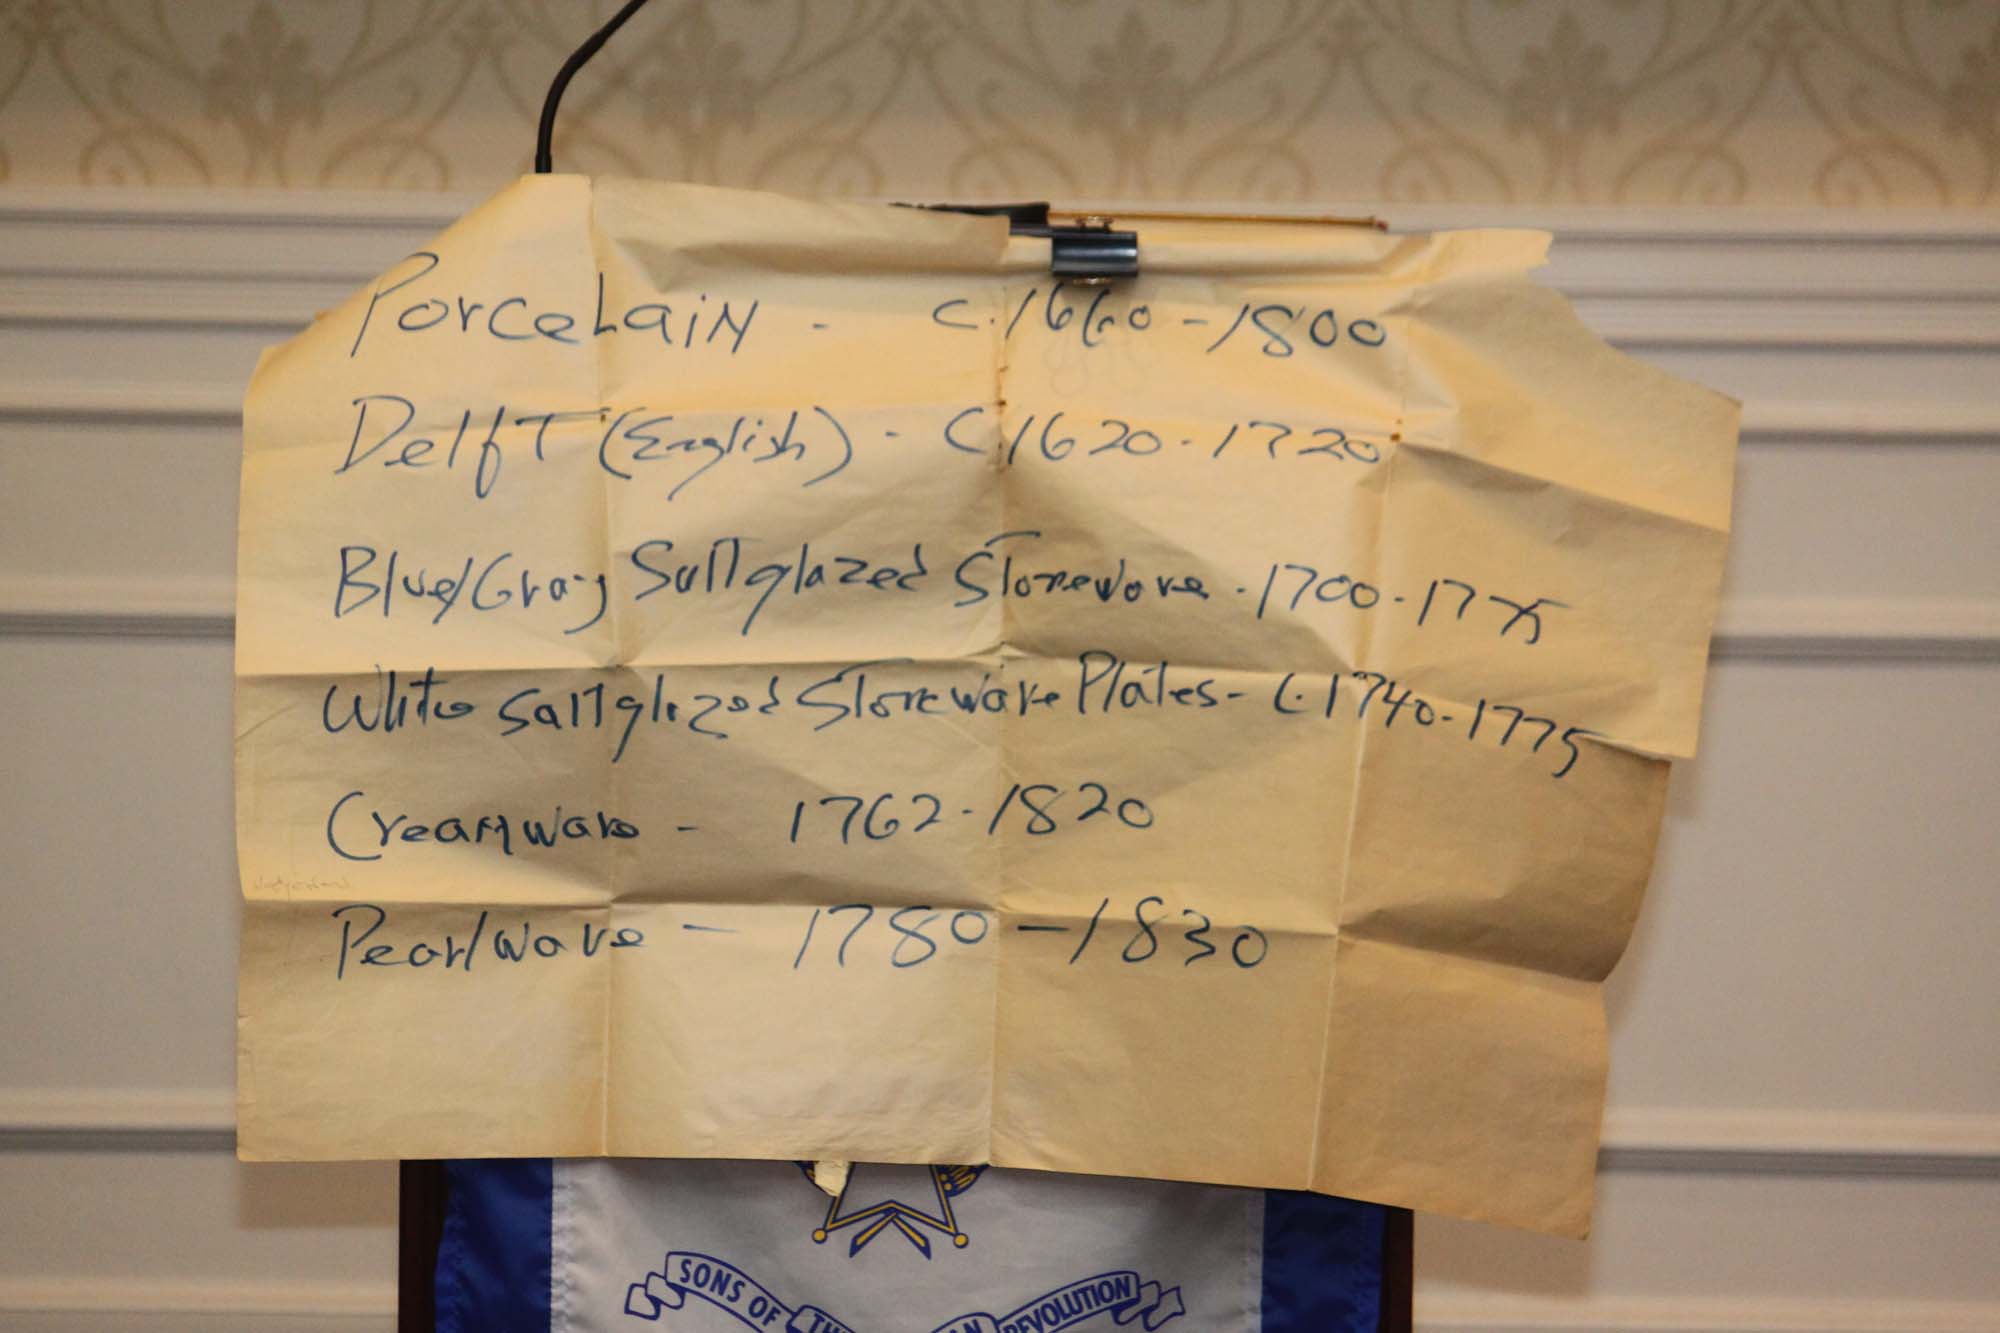 Porcelain - c.1660-1800
Delft (English) - c1620-1720
Blue/Gray Saltglazed Stoneware - 1700-1775
White Saltglazed Stoneware Plates - c.1740-1775
Creamware - 1762-1820
Pearlware - 1780-1830
SONS OF THE
REVOLUTION